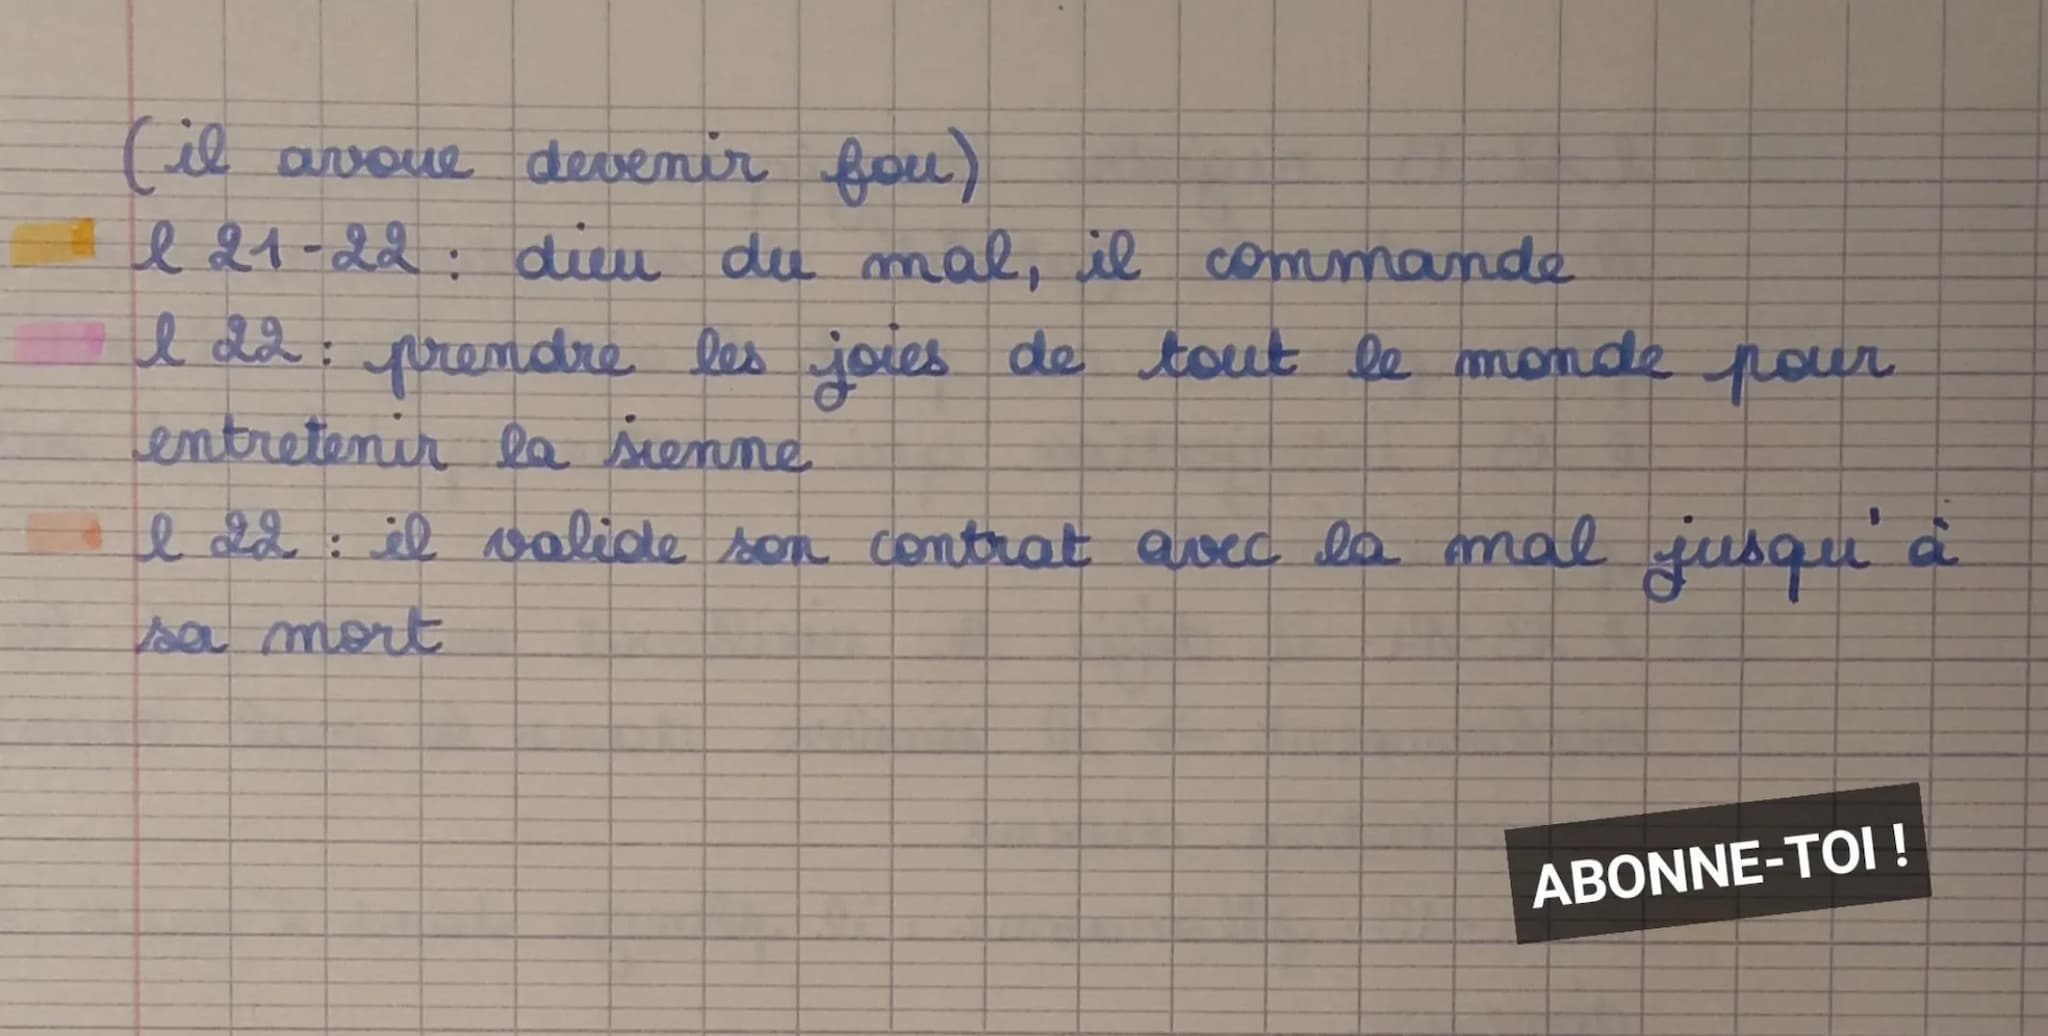 (il avoue devenir fou)
l 21-22 : dieu du mal, il commande
l 22 : prendre les joies de tout le monde pour
entretenir la sienne
l 22 : il valide son contrat avec la mal jusqu'à
sa mort
ABONNE-TOI !